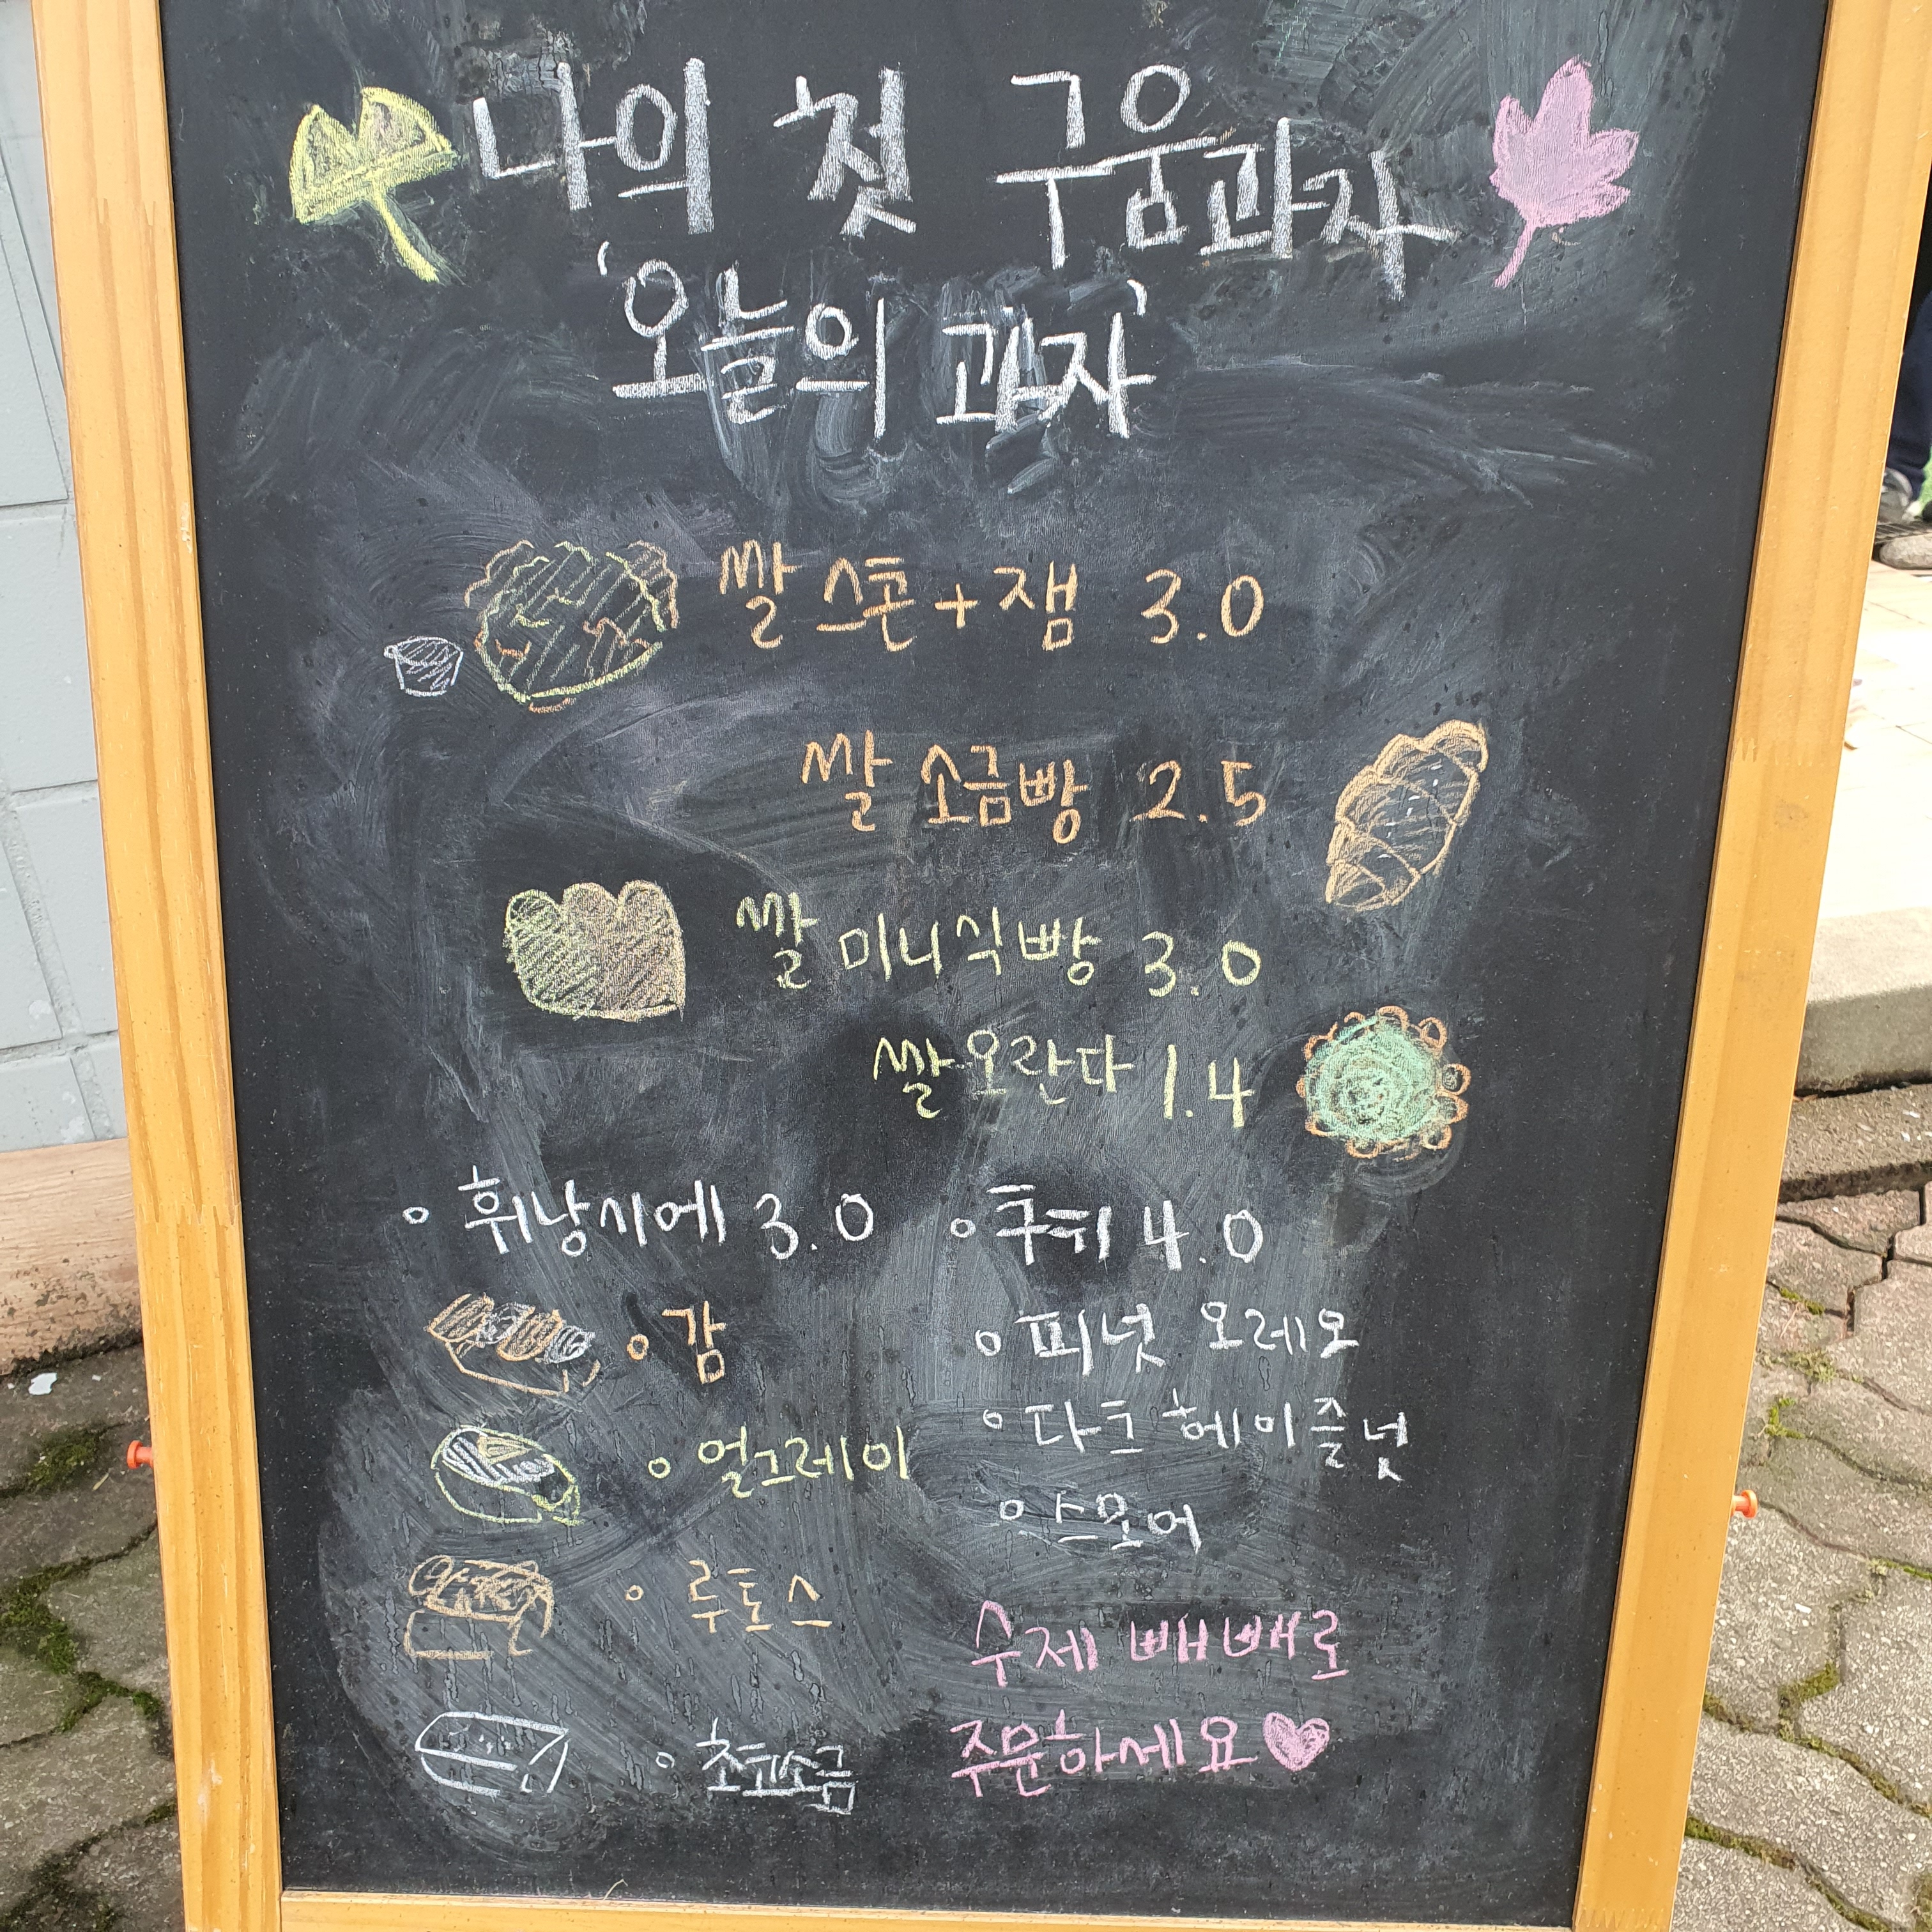 나의 첫 구움과자
'오늘의 과자'
쌀 스콘 + 잼 3.0
쌀 소금빵 2.5
쌀 미니식빵 3.0
쌀오란다 1.4
휘낭시에 3.0
감
얼그레이
루토스
초코소금
쿠키 4.0
피넛 오레오
다크 헤이즐넛
스모어
수제 빼빼로
주문하세요♥